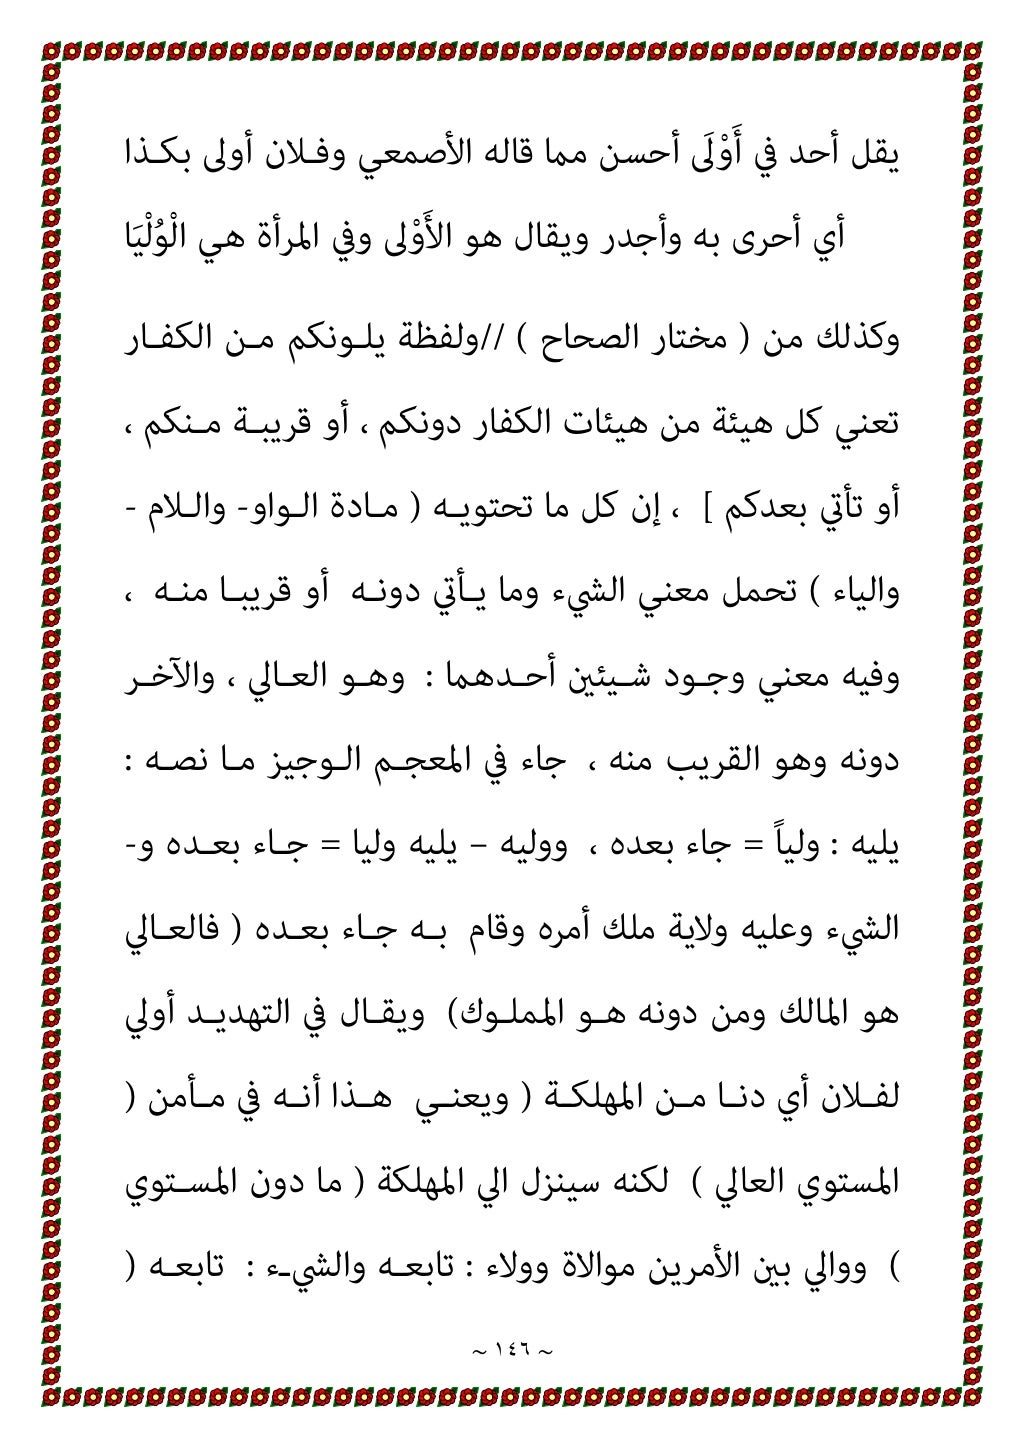 يقل أحد في أَوْلَى أحسن مما قاله الأصمعي وفلان أولى بكذا
أي أحرى به وأجدر ويقال هو الأَوْلى وفي المرأة هي الْوُلْيَا
وكذلك من ( مختار الصحاح ) //ولفظة يلونكم من الكفار
تعني كل هيئة من هيئات الكفار دونكم ، أو قريبة منكم ،
أو تأتي بعدكم ] ، إن كل ما تحتويه ( مادة الواو- واللام -
والياء ) تحمل معني الشيء وما يأتي دونه أو قريبا منه ،
وفيه معني وجود شيئين أحدهما : وهو العالي ، والآخر
دونه وهو القريب منه ، جاء في المعجم الوجيز ما نصه :
يليه : ولياً = جاء بعده ، ووليه – يليه وليا = جاء بعده و-
الشيء وعليه ولاية ملك أمره وقام به جاء بعده ( فالعالي
هو المالك ومن دونه هو المملوك) ويقال في التهديد أولي
لفلان أي دنا من المهلكة ( ويعني هذا أنه في مأمن (
المستوي العالي ) لكنه سينزل الي المهلكة ( ما دون المستوي
) ووالي بين الأمرين موالاة وولاء : تابعه والشيء : تابعه (
~ ١٤٦ ~